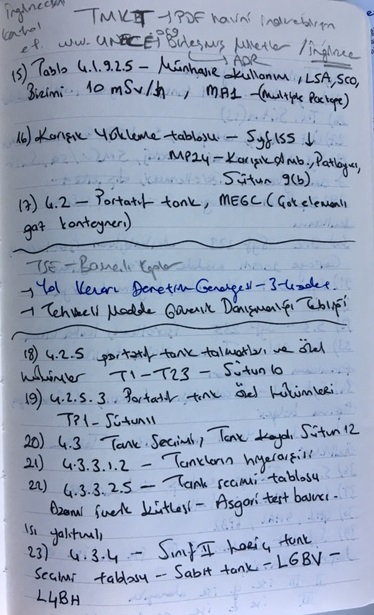 İngilizcesini
kontrol
et
TMKT → PDF halini indirebilirsin
www.UNECE.org Birleşmiş Milletler / İngilizce
ADR
15) Tablo 4.1.9.2.5 – Münhasır kullanım, LSA, SCO,
Birimi 10 mSv/h, MP1 – (Multiple Package)
16) Karışık Yükleme tablosu – Syf 155 ↓
MP24 – Karışık Amb., Patlayıcı,
Sütun 9(b)
17) 4.2 – Portatif tank, MEGC (Çok elemanlı
gaz konteyneri)
TSE – Basınçlı Kaplar
→ Yol Kenarı Denetim Genelgesi – 3 –
→ Tehlikeli Madde Güvenlik Danışmanlığı Tebliği
18) 4.2.5 portatif tank talimatları ve özel
hükümler T1 – T23 – Sütun 10
19) 4.2.5.3 Portatif tank özel hükümleri
TP1 – Sütun 11
20) 4.3 Tank Seçimi, Tank kodu Sütun 12
21) 4.3.3.1.2 – Tankların hiyerarşisi
22) 4.3.3.2.5 – Tank seçimi tablosu
Azami kütlesi – Asgari test basıncı –
Isı yalıtımlı
23) 4.3.4 – Sınıf II hariç tank
seçimi tablosu – Sabit tank – LGBV –
L4BH